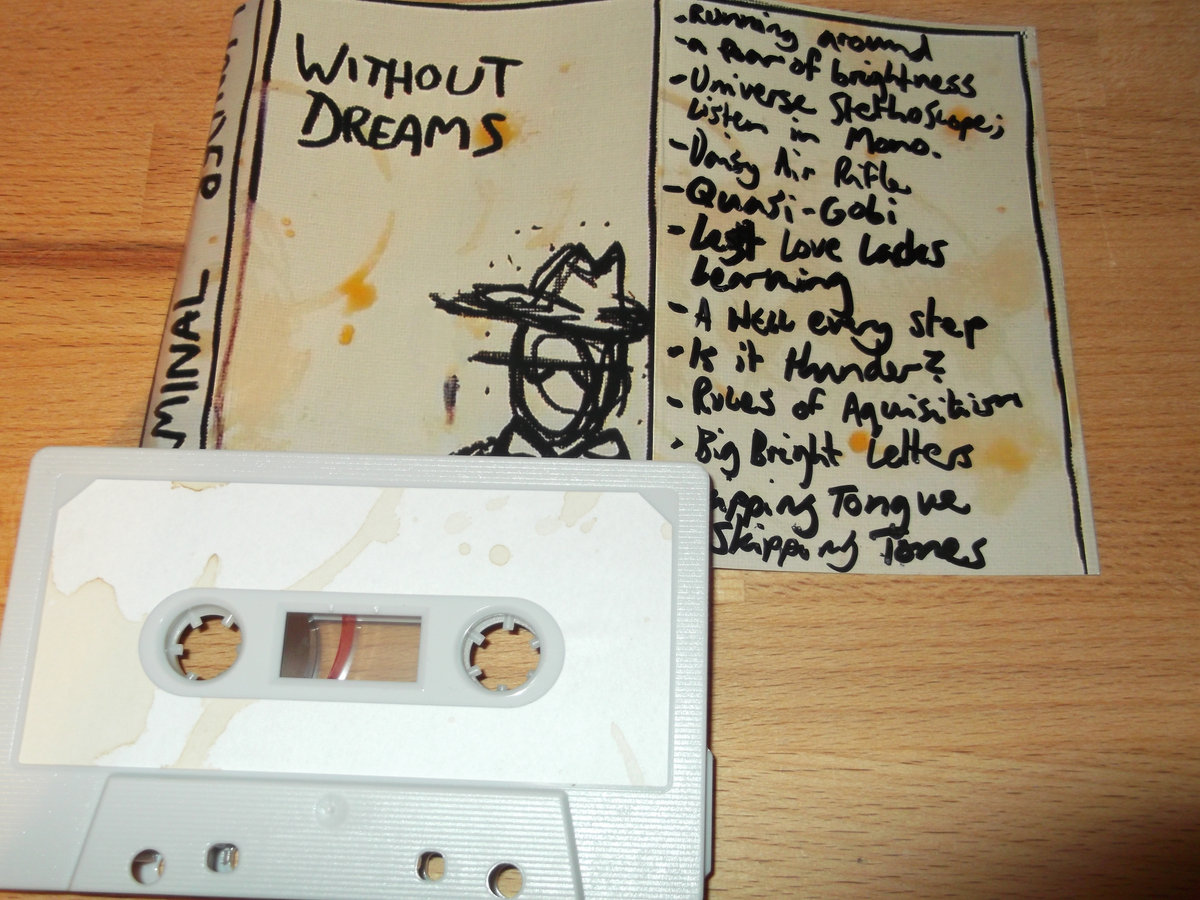 WITHOUT
DREAMS
MINAL
- Running around
- a fear of brightness
- Universe Stethoscope;
Listen in Mono.
- Daisy Air Rifle
- Quasi-Gobi
- Last Love Lacks
Learning
- A Well every step
- Is it thunder?
- Rules of Aquisitism
- Big Bright Letters
ipping Tongue
Skipping Tones